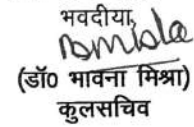 भवदीया,
(डॉ0 भावना मिश्रा)
कुलसचिव